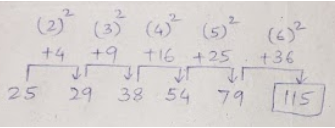 (2)² (3)² (4)² (5)² (6)²
+4 +9 +16 +25 +36
25 29 38 54 79 115